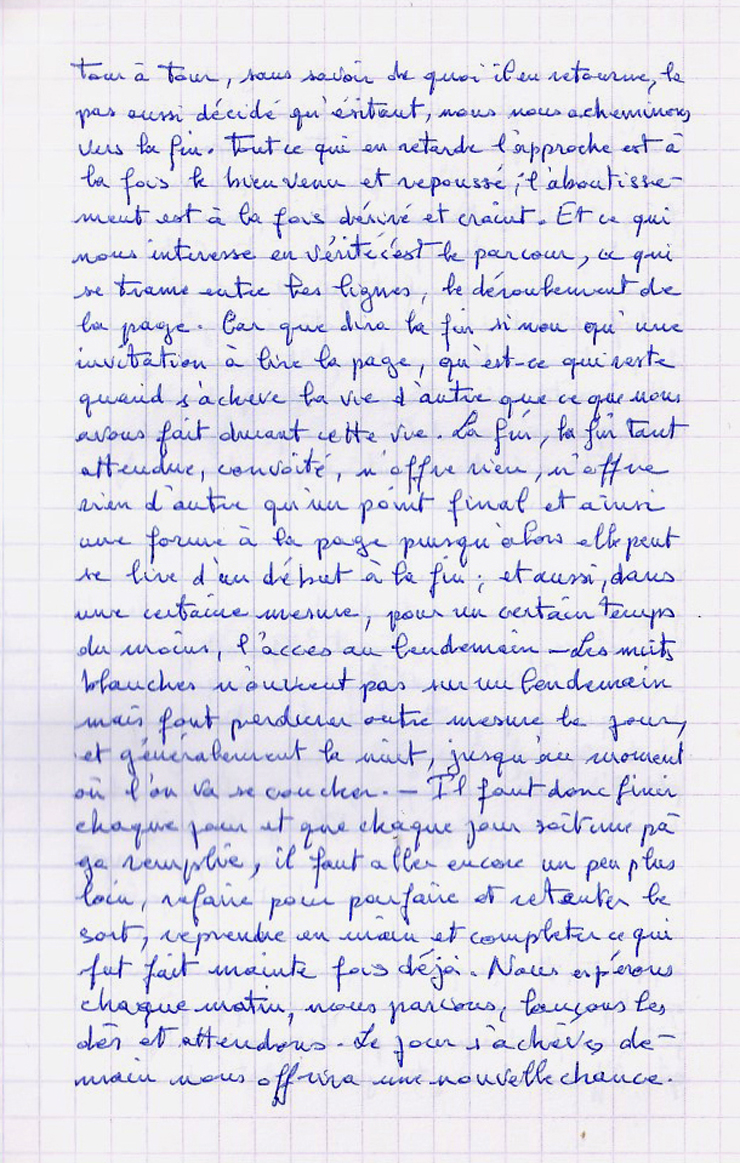 tour à tour, sans savoir de quoi il en retourne, le
pas aussi décidé qu'ésitant, nous nous acheminons
vers la fin. Tout ce qui en retarde l'approche est à
la fois le bienvenu et repoussé ; l'aboutisse-
ment est à la fois désiré et craint. Et ce qui
nous interesse en vérité c'est le parcour, ce qui
se trame entre les lignes, le déroulement de
la page. Car que dira la fin sinon qu'une
invitation à lire la page, qu'est-ce qui reste
quand s'achève la vie d'autre que ce que nous
avons fait durant cette vie. La fin, la fin tant
attendue, convoité, n'offre rien, n'offre
rien d'autre qu'un point final et ainsi
une forme à la page puisqu'alors elle peut
se lire d'un début à la fin ; et aussi, dans
une certaine mesure, pour un certain temps
du moins, l'accès au lendemain — Les nuits
blanches n'ouvrent pas sur un lendemain
mais font perdurer outre mesure le jour,
et généralement la nuit, jusqu'au moment
où l'on va se coucher. — Il faut donc finir
chaque jour et que chaque jour soit une pa
ge remplie, il faut aller encore un peu plus
loin, refaire pour parfaire et retenter le
sort, reprendre en main et completer ce qui
fut fait mainte fois déjà. Nous espérons
chaque matin, nous parions, lançons les
dés et attendons. Le jour s'achève, de-
main nous offrira une nouvelle chance.